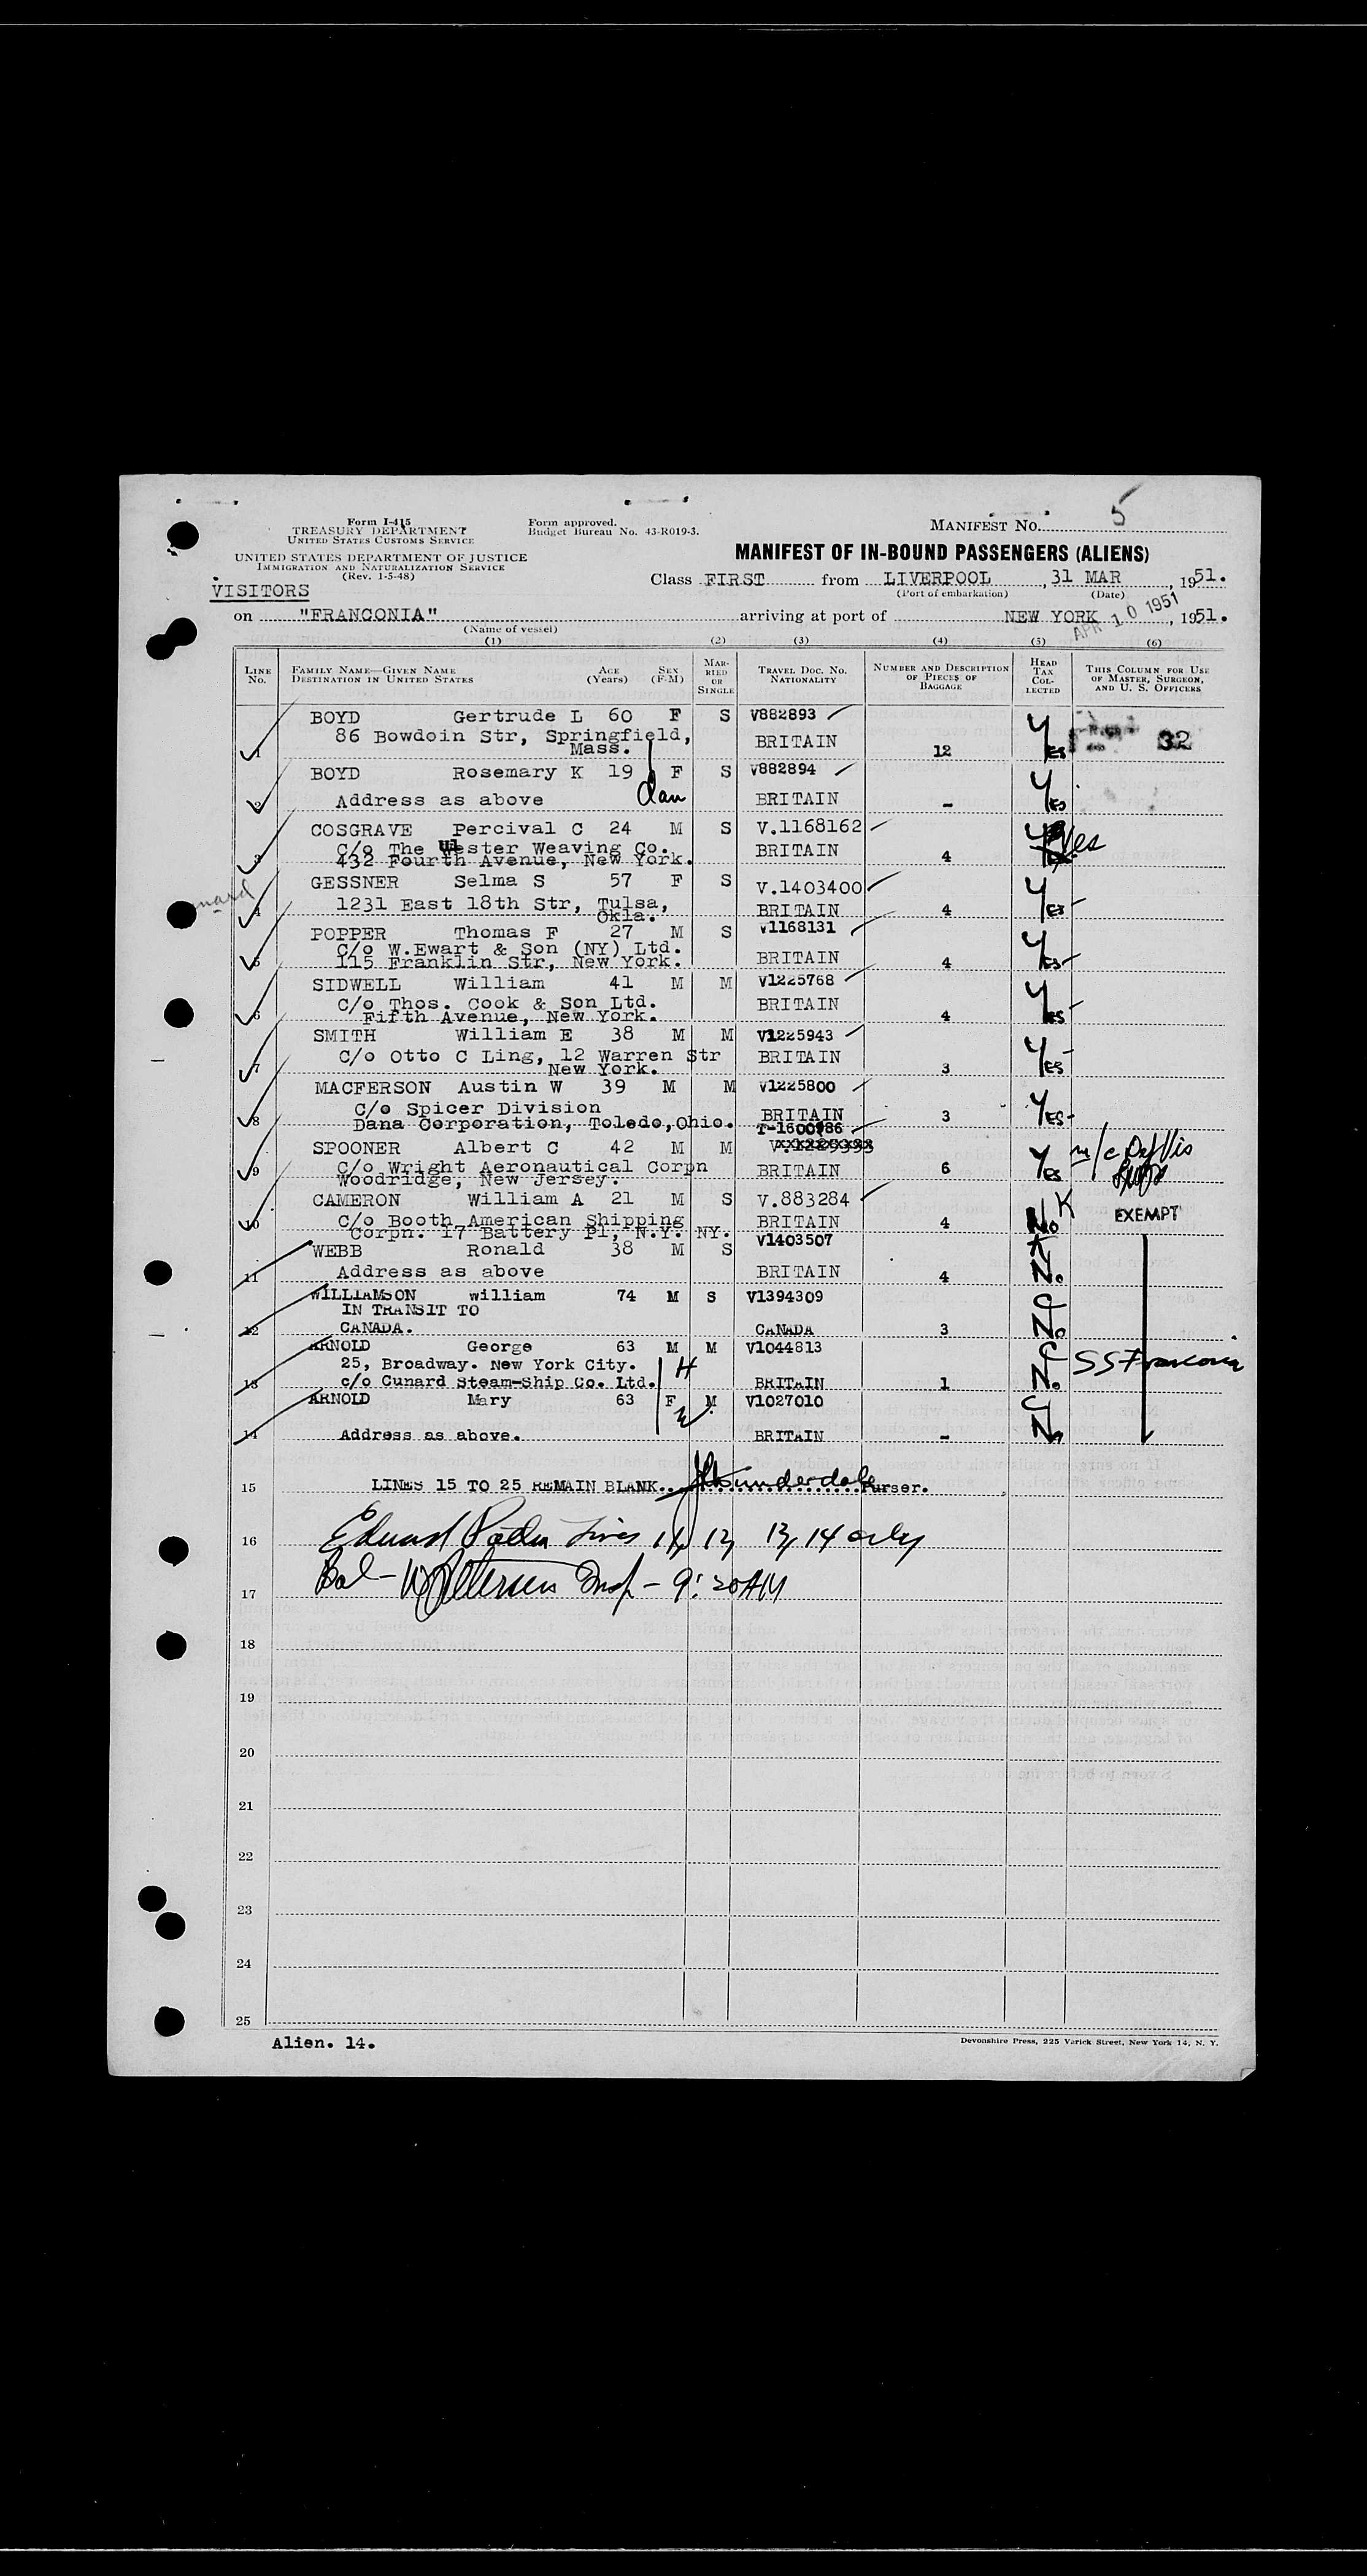 5
Form I-415
TREASURY DEPARTMENT
UNITED STATES CUSTOMS SERVICE
UNITED STATES DEPARTMENT OF JUSTICE
IMMIGRATION AND NATURALIZATION SERVICE
(Rev. 1-5-48)
Form approved.
Budget Bureau No. 43-R019-3.
MANIFEST No.
MANIFEST OF IN-BOUND PASSENGERS (ALIENS)
Class FIRST from LIVERPOOL, 31 MAR, 1951.
(Port of embarkation) (Date)
VISITORS
on "FRANCONIA" arriving at port of NEW YORK, 1951.
(Name of vessel)
APR 10 1951
(1) (2) (3) (4) (5) (6)
LINE No. FAMILY NAME—GIVEN NAME DESTINATION IN UNITED STATES AGE (Years) SEX (F-M) MARRIED OR SINGLE TRAVEL DOC. NO. NATIONALITY NUMBER AND DESCRIPTION OF PIECES OF BAGGAGE HEAD TAX COLLECTED THIS COLUMN FOR USE OF MASTER, SURGEON, AND U. S. OFFICERS
BOYD Gertrude L 60 F S V882893
86 Bowdoin Str, Springfield, BRITAIN Yes 32
1 Mass. 12
BOYD Rosemary K 19 F S V882894
2 Address as above dau BRITAIN - Yes
COSGRAVE Percival C 24 M S V.1168162 Yes
C/o The Ulster Weaving Co. BRITAIN
3 432 Fourth Avenue, New York. 4
GESSNER Selma S 57 F S V.1403400
1231 East 18th Str, Tulsa,
4 Okla. BRITAIN 4 Yes
POPPER Thomas F 27 M S V1168131
C/o W.Ewart & Son (NY) Ltd.
5 115 Franklin Str, New York. BRITAIN 4 Yes
SIDWELL William 41 M M V1225768
C/o Thos. Cook & Son Ltd. BRITAIN
6 Fifth Avenue, New York. 4 Yes
SMITH William E 38 M M V1225943
C/o Otto C Ling, 12 Warren Str BRITAIN
7 New York. 3 Yes
MACFERSON Austin W 39 M M V1225800
C/o Spicer Division BRITAIN 3
8 Dana Corporation, Toledo,Ohio. Yes
T-1600986
SPOONER Albert C 42 M M
C/o Wright Aeronautical Corpn BRITAIN 6 Yes
9 Woodridge, New Jersey.
CAMERON William A 21 M S V.883284 K
C/o Booth American Shipping BRITAIN 4 No EXEMPT
10 Corpn. 17 Battery Pl, N.Y. NY.
WEBB Ronald 38 M S V1403507 K
11 Address as above BRITAIN 4 No
WILLIAMSON william 74 M S V1394309 C
IN TRANSIT TO
12 CANADA. CANADA 3 No
ARNOLD George 63 M M V1044813 C
25, Broadway. New York City. H SS Franconia
13 c/o Cunard Steam-Ship Co. Ltd. BRITAIN 1 No
ARNOLD Mary 63 F M V1027010 C
W
14 Address as above. BRITAIN - No
15 LINES 15 TO 25 REMAIN BLANK. Purser.
16 Edward Lines 11, 12, 13, 14 only
17 Bal- Insp - 9:20 AM
18
19
20
21
22
23
24
25
Alien. 14.
Devonshire Press, 225 Varick Street, New York 14, N. Y.